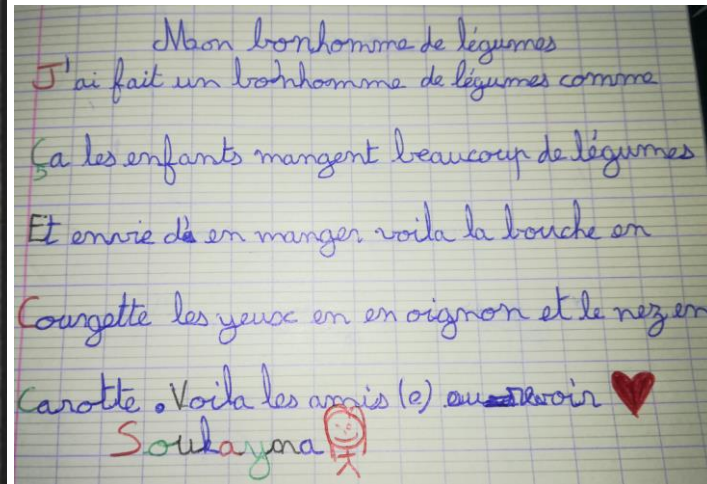 Mon bonhomme de légumes
J'ai fait un bonhomme de légumes comme
ça les enfants mangent beaucoup de légumes
Et envie d'en manger voila la bouche en
Courgette les yeux en en oignon et le nez en
Carotte. Voila les amis (e) au revoir
Soukayna